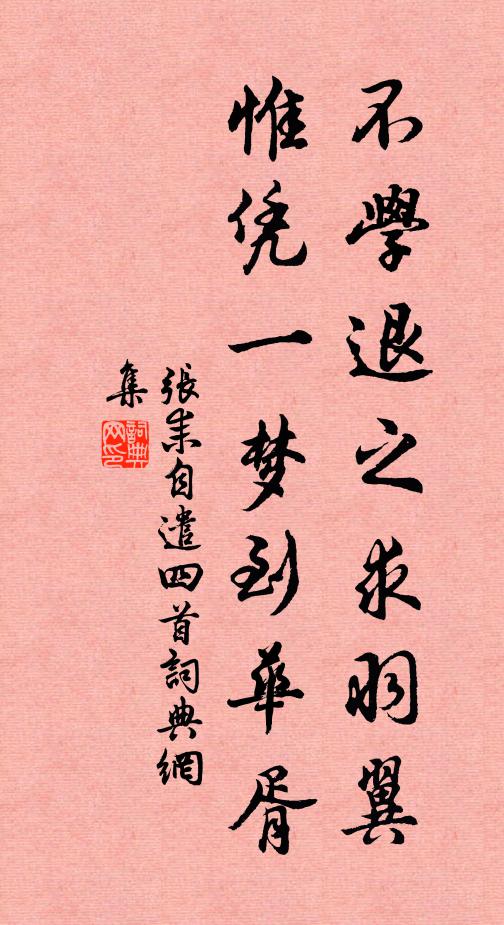 不學退之求羽翼
惟凭一梦到華胥
張耒自遣四首詞典網
集
詞典网印